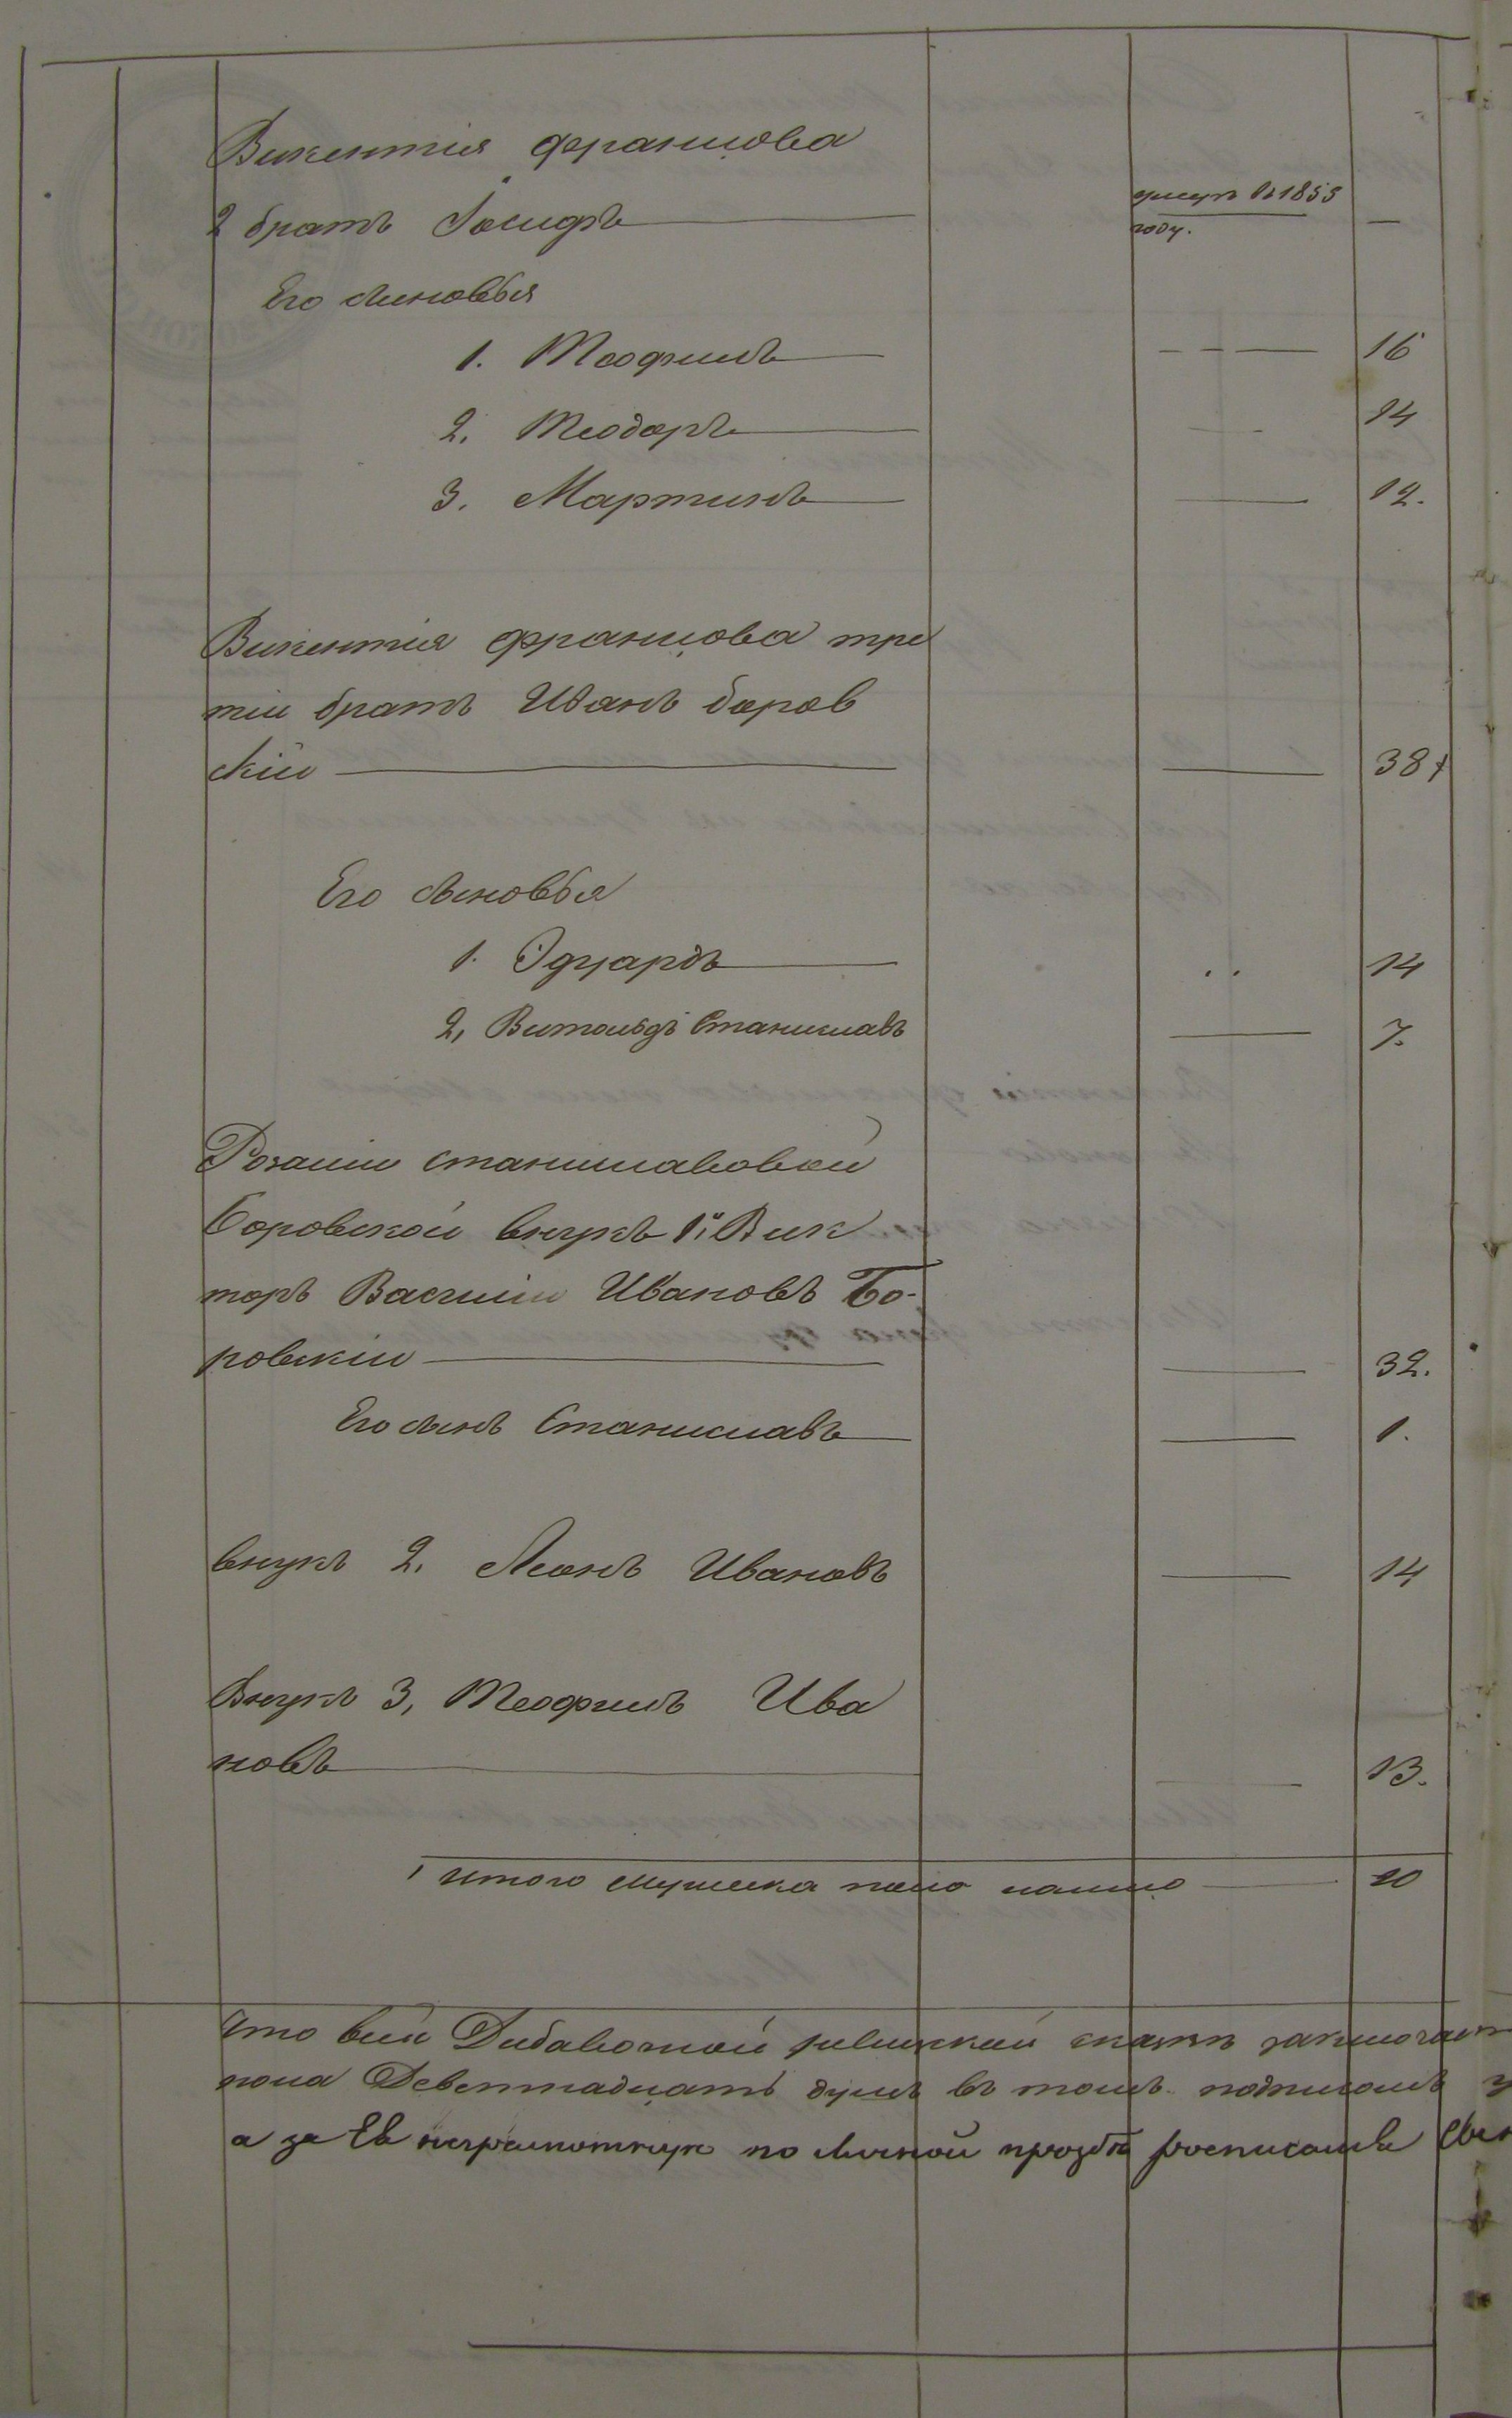 Викентія францова
2 братъ Іосифъ умеръ въ 1855 году. —
Его сыновья
1. Теофилъ 16
2. Теодоръ 14
3. Мартинъ 12.
Викентія францова тре
тіи братъ Иванъ боров
скій 38
Его сыновья
1. Эдуардъ 14
2, Витольдъ Станиславъ 7.
Розаліи станиславовой
Боровской внукъ 1й Вик
торъ Василіи Ивановъ Бо-
ровскіи 32.
Его сынъ Станиславъ 1.
внукъ 2. Леонъ Ивановъ 14
Внукъ 3, Теофилъ Ива
новъ 13.
Итого мужеска пола налицо 10
Что въ сей Дибавочной ревизской скаскъ заключает
пола Деветнадцать душъ въ томъ подписомъ у
а за Ев неграмотную по личной прозбѣ росписался